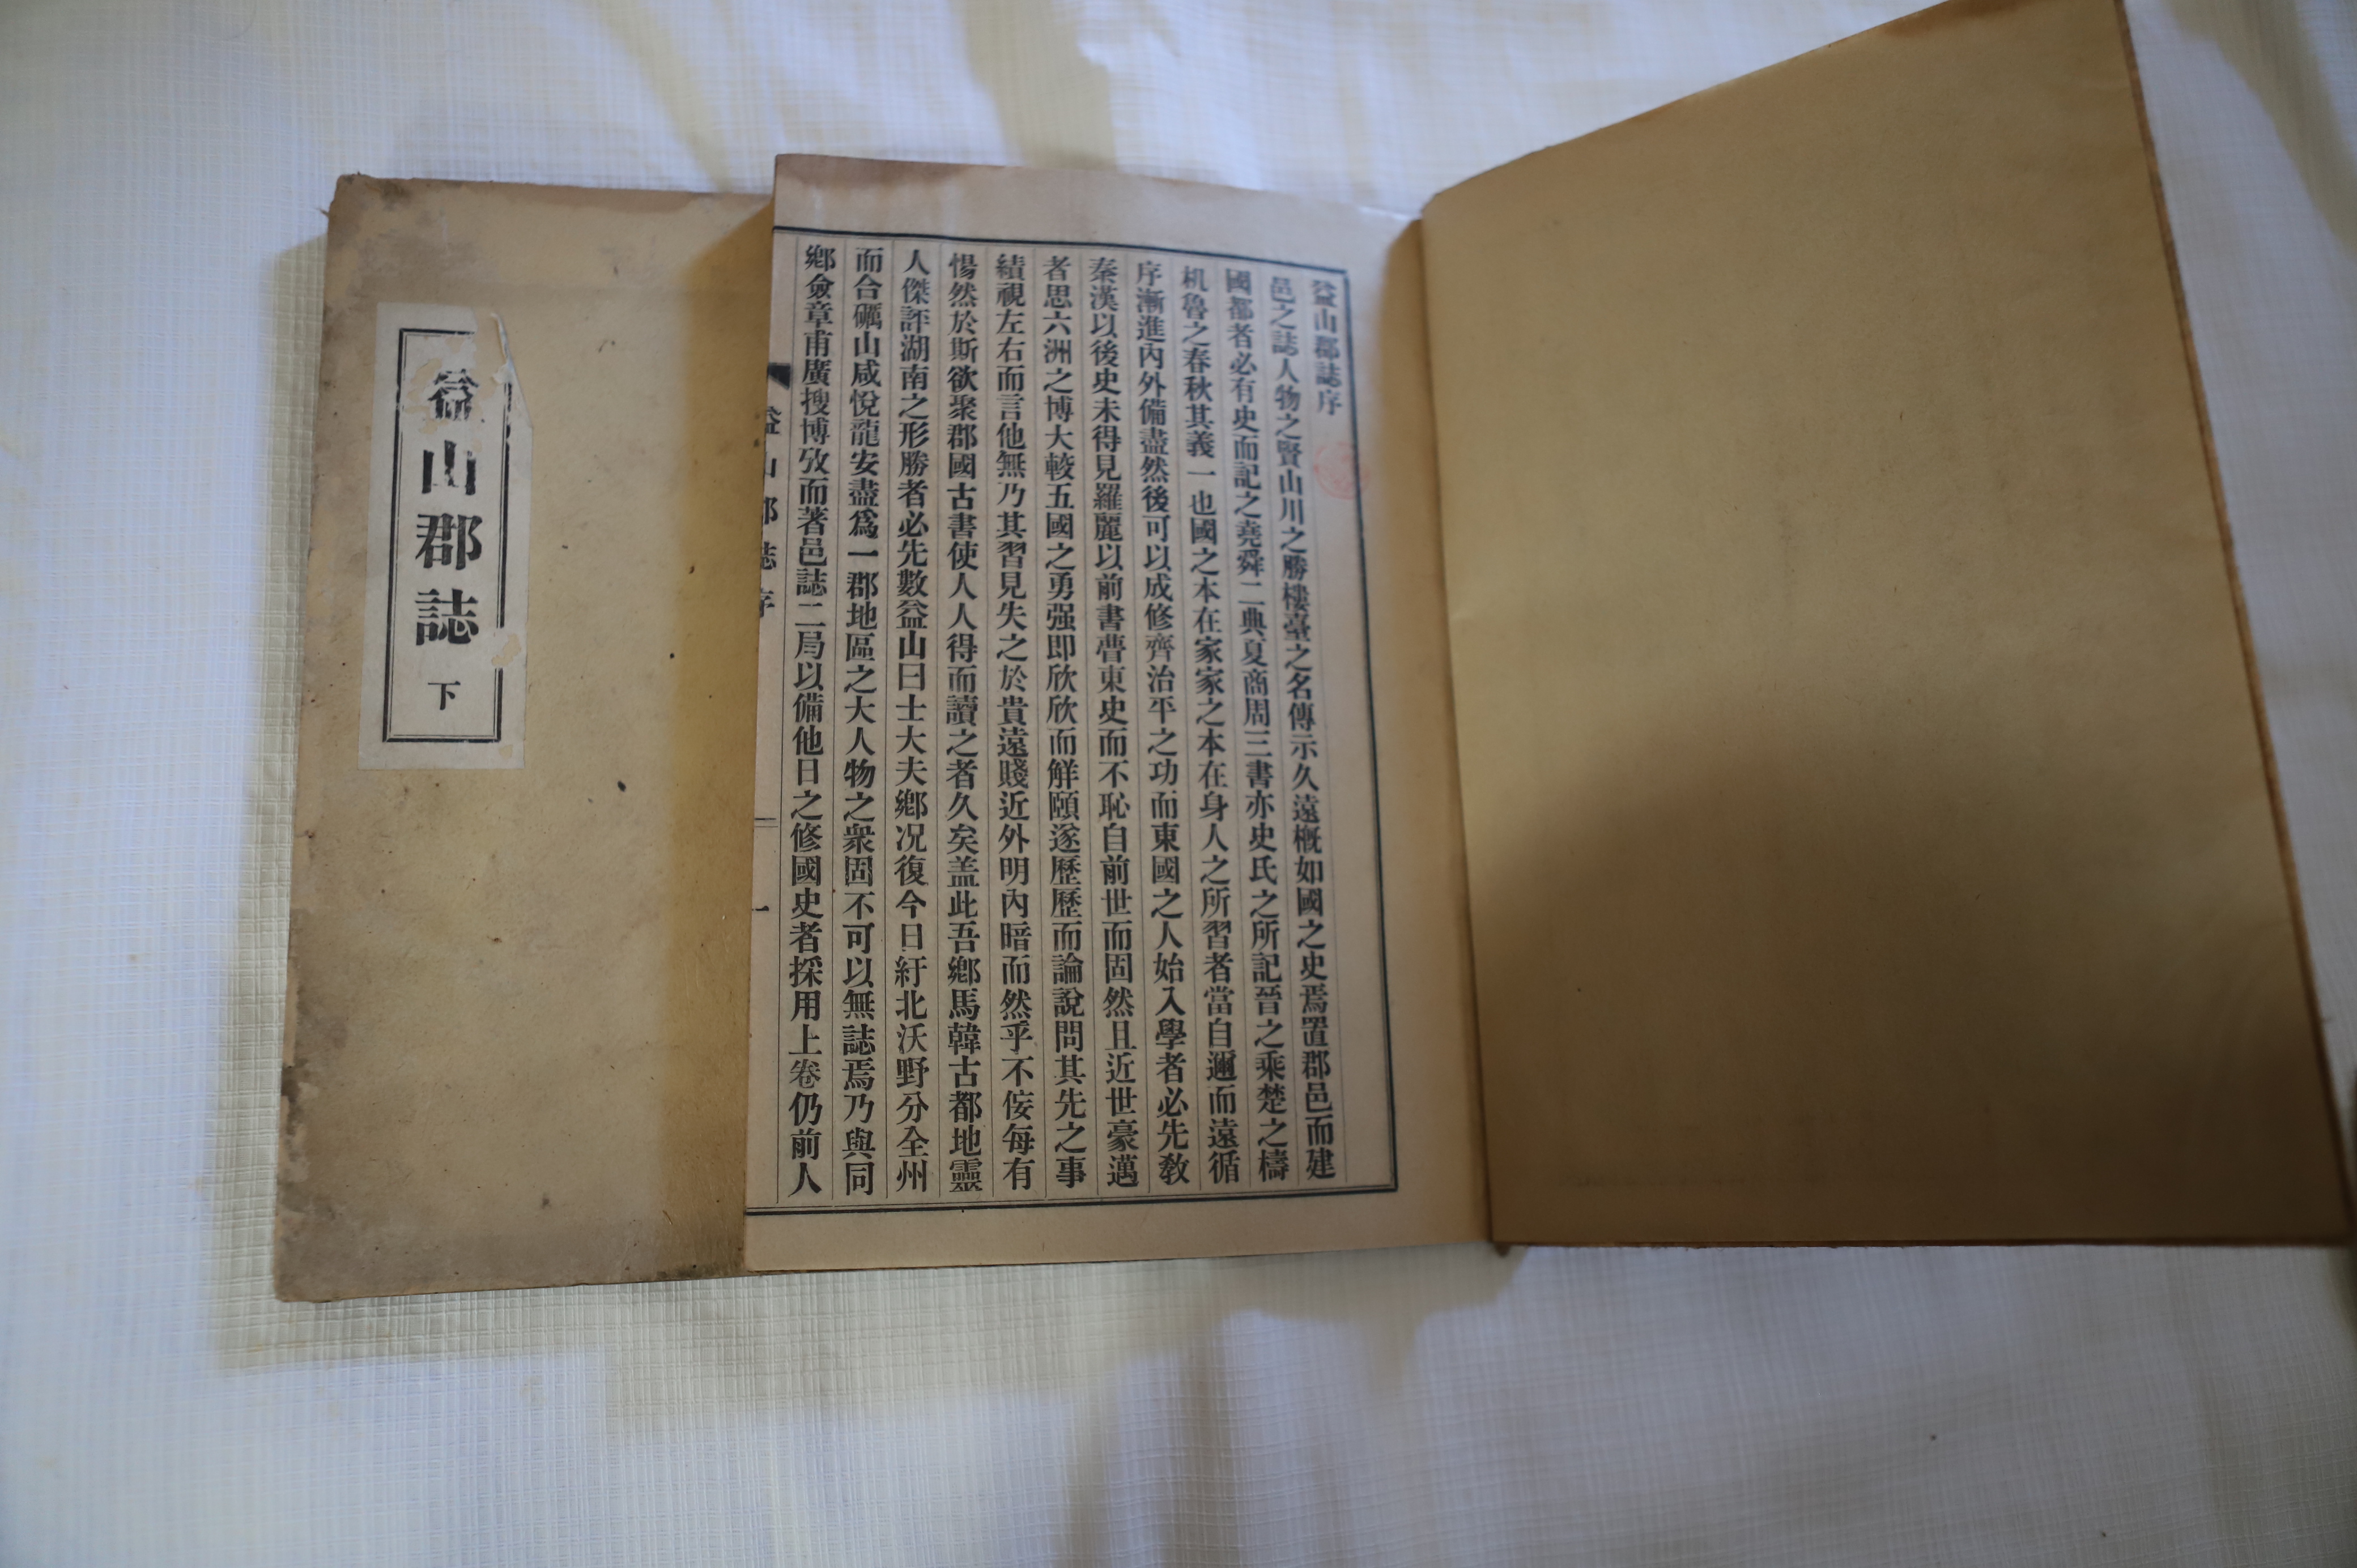 益山郡誌序
邑之誌人物之賢山川之勝樓臺之名傳示久遠槪如國之史焉置郡邑而建
國都者必有史而記之堯舜二典夏商周三書亦史氏之所記晉之乘楚之檮
杌魯之春秋其義一也國之本在家家之本在身人之所習者當自邇而遠循
序漸進內外備盡然後可以成修齊治平之功而東國之人始入學者必先敎
秦漢以後史未得見羅麗以前書曹東史而不恥自前世而固然且近世豪邁
者思六洲之博大較五國之勇强即欣欣而解頤遂歷歷而論說問其先之事
績視左右而言他無乃其習見失之於貴遠賤近外明內暗而然乎不侫每有
惕然於斯欲聚郡國古書使人人得而讀之者久矣盖此吾鄕馬韓古都地靈
人傑評湖南之形勝者必先數益山曰士大夫鄕况復今日紆北沃野分全州
而合礪山咸悅龍安盡爲一郡地區之大人物之衆固不可以無誌焉乃與同
鄕僉章甫廣搜博攷而著邑誌二局以備他日之修國史者採用上卷仍前人
益山郡誌序
一
益山郡誌 下